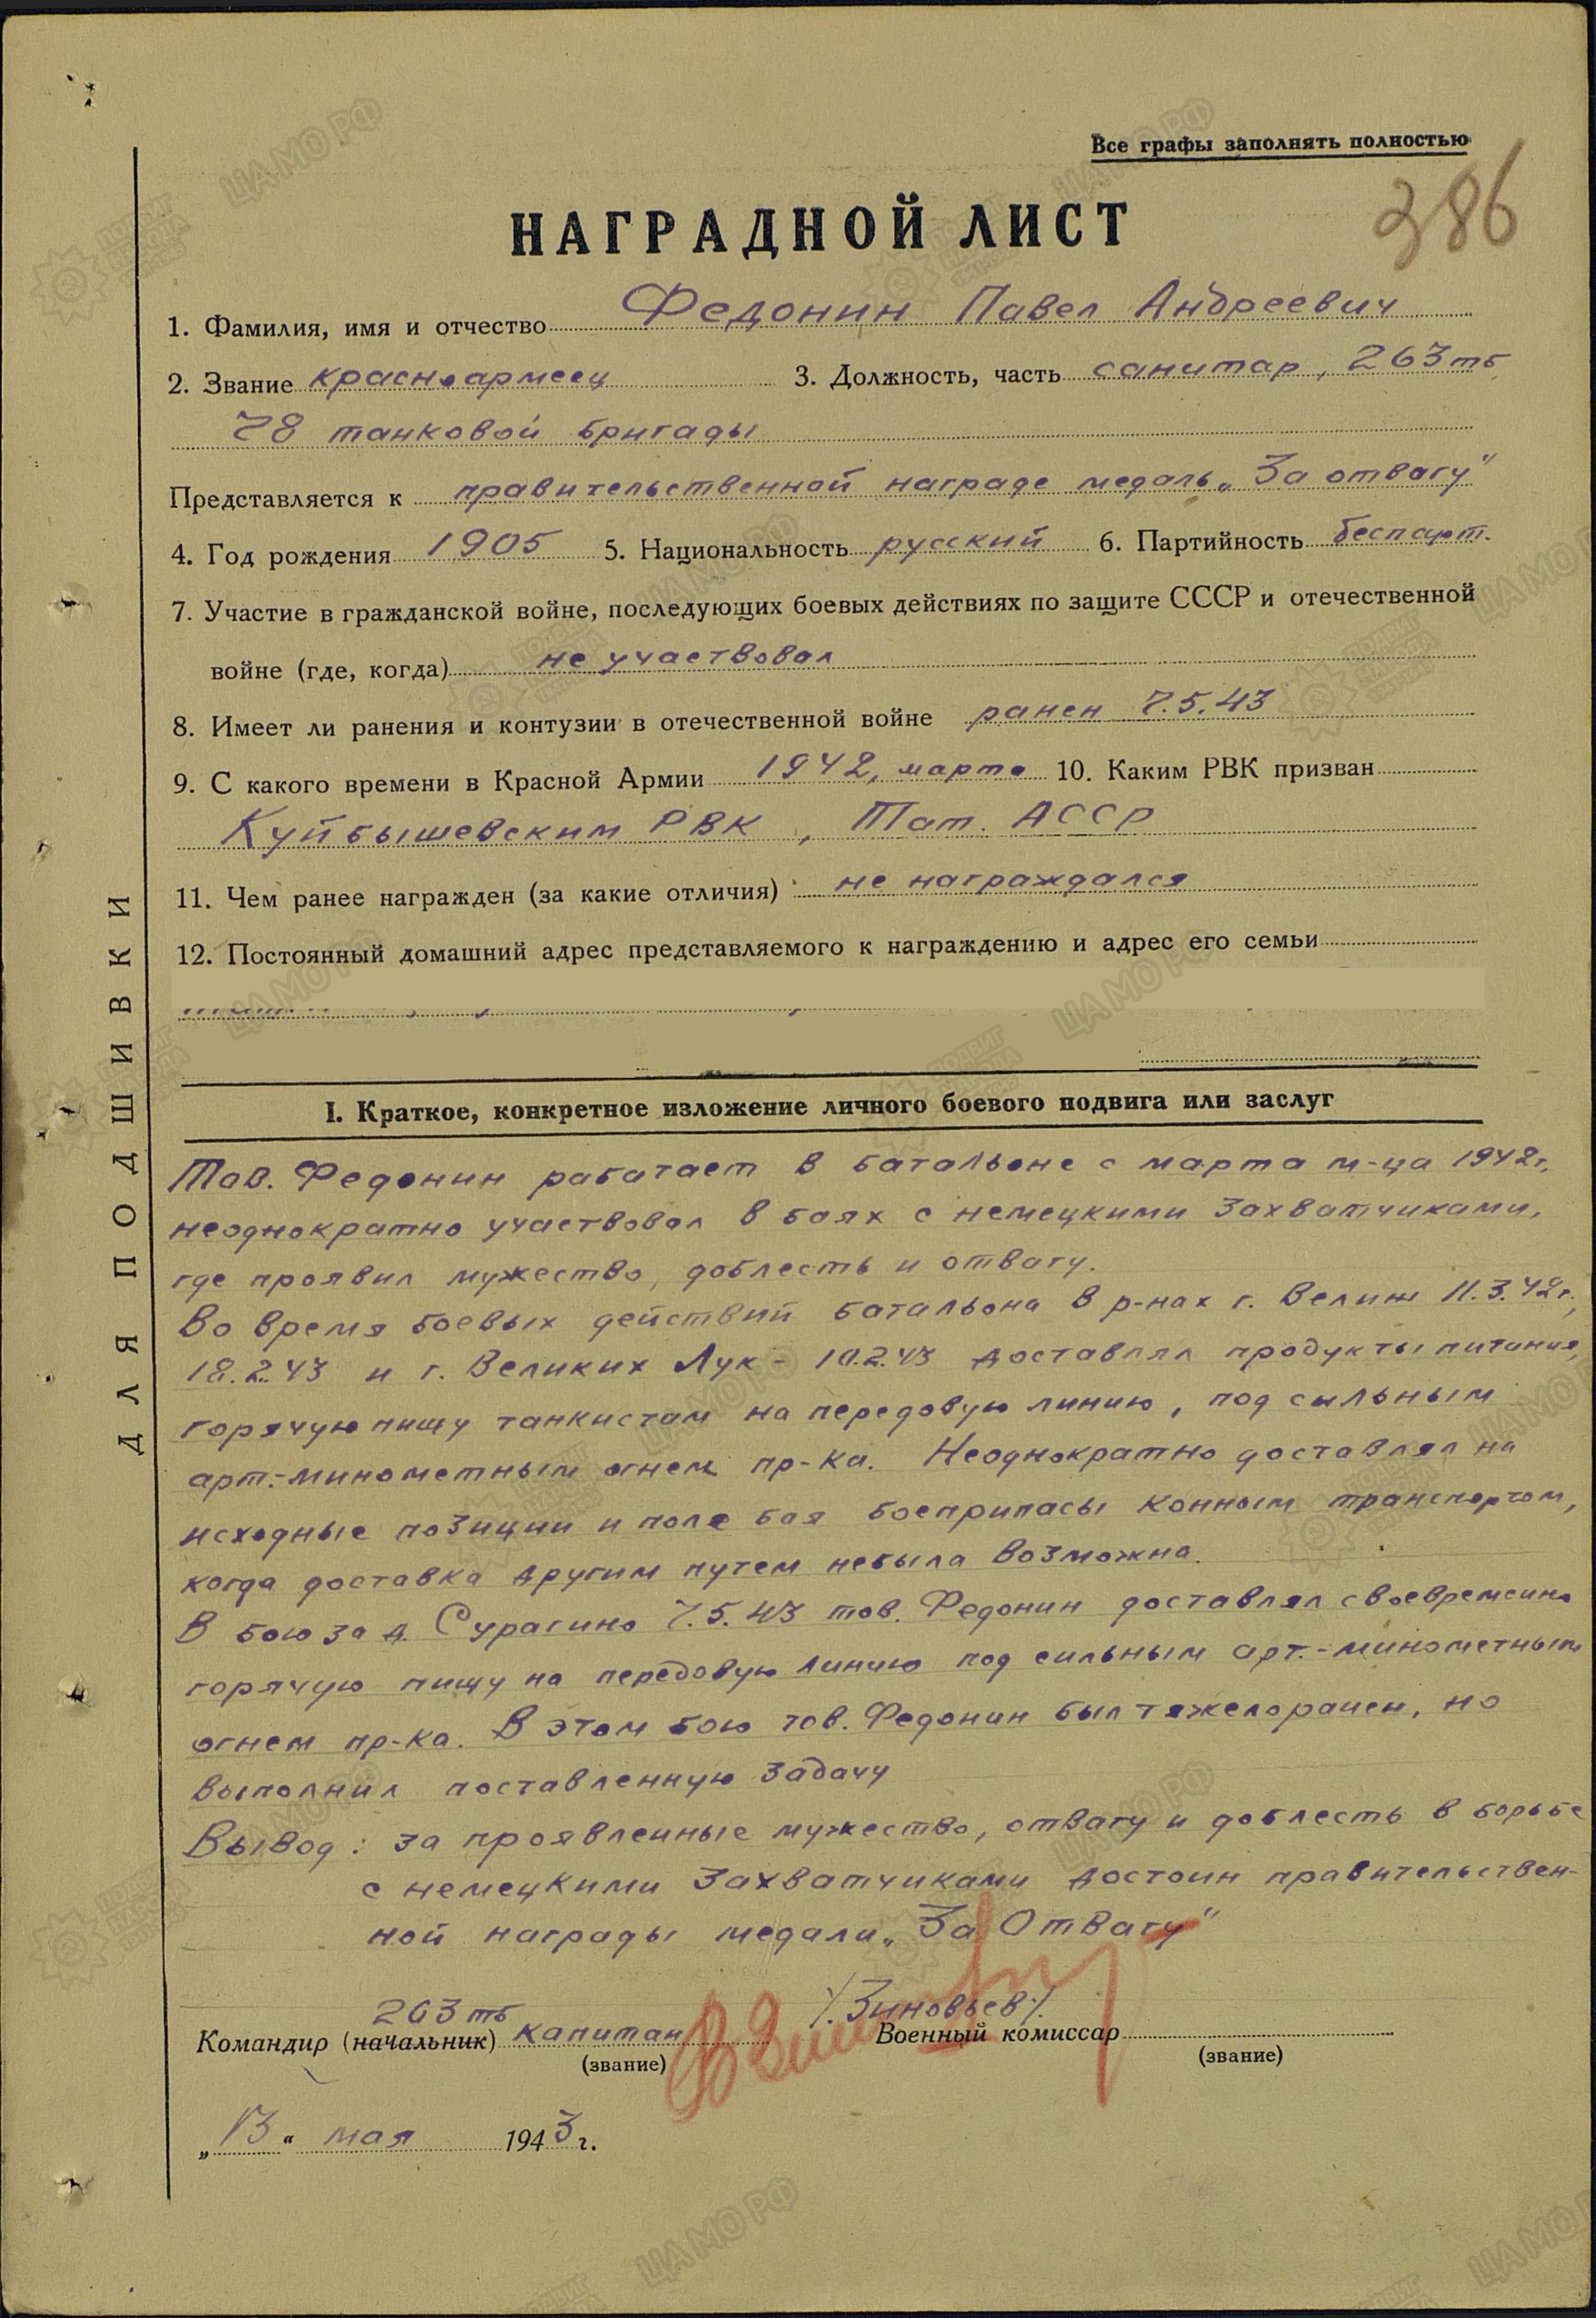 Все графы заполнять полностью
386
НАГРАДНОЙ ЛИСТ
1. Фамилия, имя и отчество Федонин Павел Андреевич
2. Звание красноармеец 3. Должность, часть санитар, 263 тб,
78 танковой бригады
Представляется к правительственной награде медаль „За отвагу"
4. Год рождения 1905 5. Национальность русский 6. Партийность беспарт.
7. Участие в гражданской войне, последующих боевых действиях по защите СССР и отечественной
войне (где, когда) не участвовал
8. Имеет ли ранения и контузии в отечественной войне ранен 7.5.43
9. С какого времени в Красной Армии 1942, марта 10. Каким РВК призван
Куйбышевским РВК, Тат. АССР
11. Чем ранее награжден (за какие отличия) не награждался
12. Постоянный домашний адрес представляемого к награждению и адрес его семьи
I. Краткое, конкретное изложение личного боевого подвига или заслуг
Тов. Федонин работает в батальоне с марта м-ца 1942г,
неоднократно участвовал в боях с немецкими захватчиками,
где проявил мужество, доблесть и отвагу.
Во время боевых действий батальона в р-нах г. Велиж 11.3.42г.,
18.2.43 и г. Великих Лук - 10.2.43 доставлял продукты питания,
горячую пищу танкистам на передовую линию, под сильным
арт.-минометным огнем пр-ка. Неоднократно доставлял на
исходные позиции и поле боя боеприпасы конным транспортом,
когда доставка другим путем небыла возможна.
В бою за д. Сурагино 7.5.43 тов. Федонин доставлял своевременно
горячую пищу на передовую линию под сильным арт.-минометным
огнем пр-ка. В этом бою тов. Федонин был тяжело ранен, но
выполнил поставленную задачу
Вывод: за проявленные мужество, отвагу и доблесть в борьбе
с немецкими захватчиками достоин правительствен-
ной награды медали „За Отвагу"
263 тб /.Зиновьев/.
Командир (начальник) капитан Военный комиссар
(звание) (звание)
„13" мая 1943 г.
ДЛЯ ПОДШИВКИ
ЦАМО РФ
ПОДВИГ НАРОДА